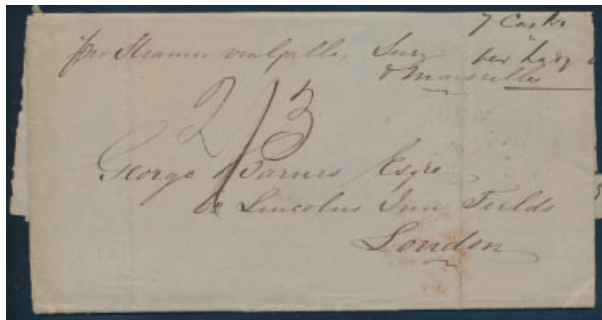 7 Casks
per Steamer via Galle, Suez per Lady
& Marseilles
2/3
George Barnes Esqre
Lincolns Inn Fields
London